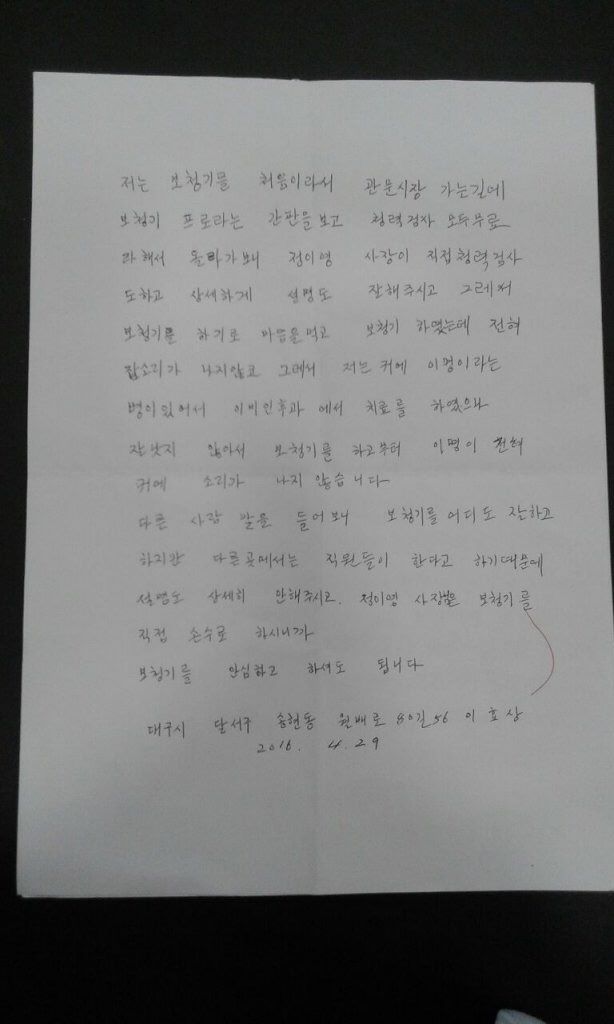 저는 보청기를 처음이라서 관문시장 가는길에
보청기 프로라는 간판을보고 청력검사 모두무료
라해서 들라가보니 정이영 사장이 직접청력검사
도하고 상세하게 설명도 잘해주시고 그레서
보청기를 하기로 마음을먹고 보청기 하였는데 전혀
잡소리가 나지않고 그래서 저는 귀에 이명이라는
병이있어서 이비인후과 에서 치료를 하였으나
잘낫지 않아서 보청기를 하고부터 이명이 전혀
귀에 소리가 나지 않습니다
다른 사람 말을 들어보니 보청기를 어디도 잘하고
하지만 다른곳에서는 직원들이 한다고 하기때문에
설명도 상세히 안해주시고. 정이영 사장님은 보청기를
직접 손수로 하시니까
보청기를 안심하고 하셔도 됩니다
대구시 달서구 송현동 월배로 80길 56 이효상
2016. 4. 29